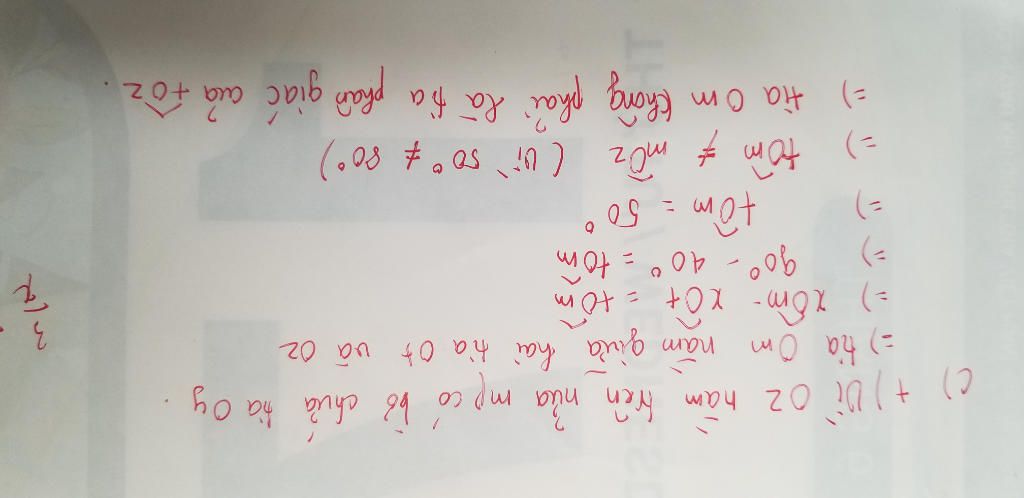 c) +) Vì Oz nằm trên nửa mp có bờ chứa tia Oy.
=) tia Om nằm giữa hai tia Ot và Oz
=) xÔm - xÔt = tÔm
=) 90° - 40° = tÔm
=) tÔm = 50°
=) tÔm ≠ mÔz (Vì 50° ≠ 80°)
=) tia Om không phải là tia phân giác của tÔz.